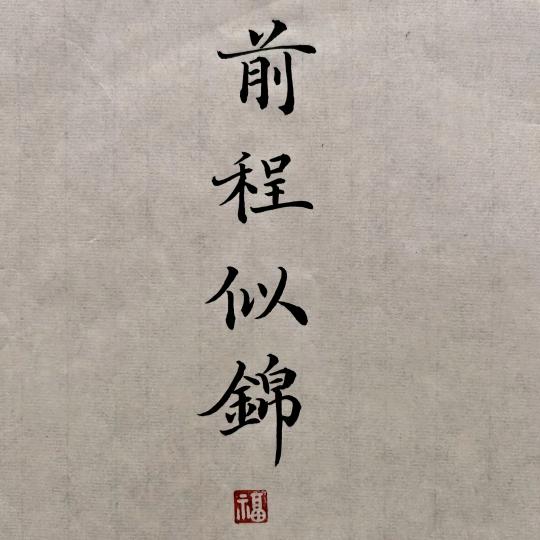 前程似錦
福